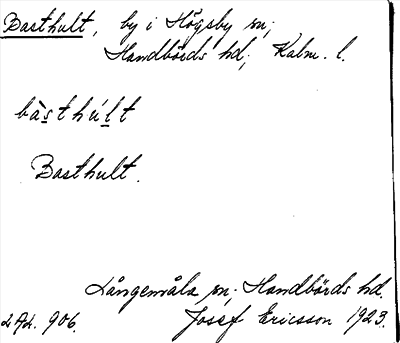 Basthult, by i Högsby sn;
Handbörds hd; Kalm. l.
bàsthúlt
Basthult.
Långemåla sn; Handbörds hd.
906. Josef Ericsson 1923.